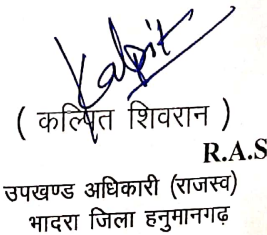 Kalpit
( कल्पित शिवरान )
R.A.S
उपखण्ड अधिकारी (राजस्व)
भादरा जिला हनुमानगढ़